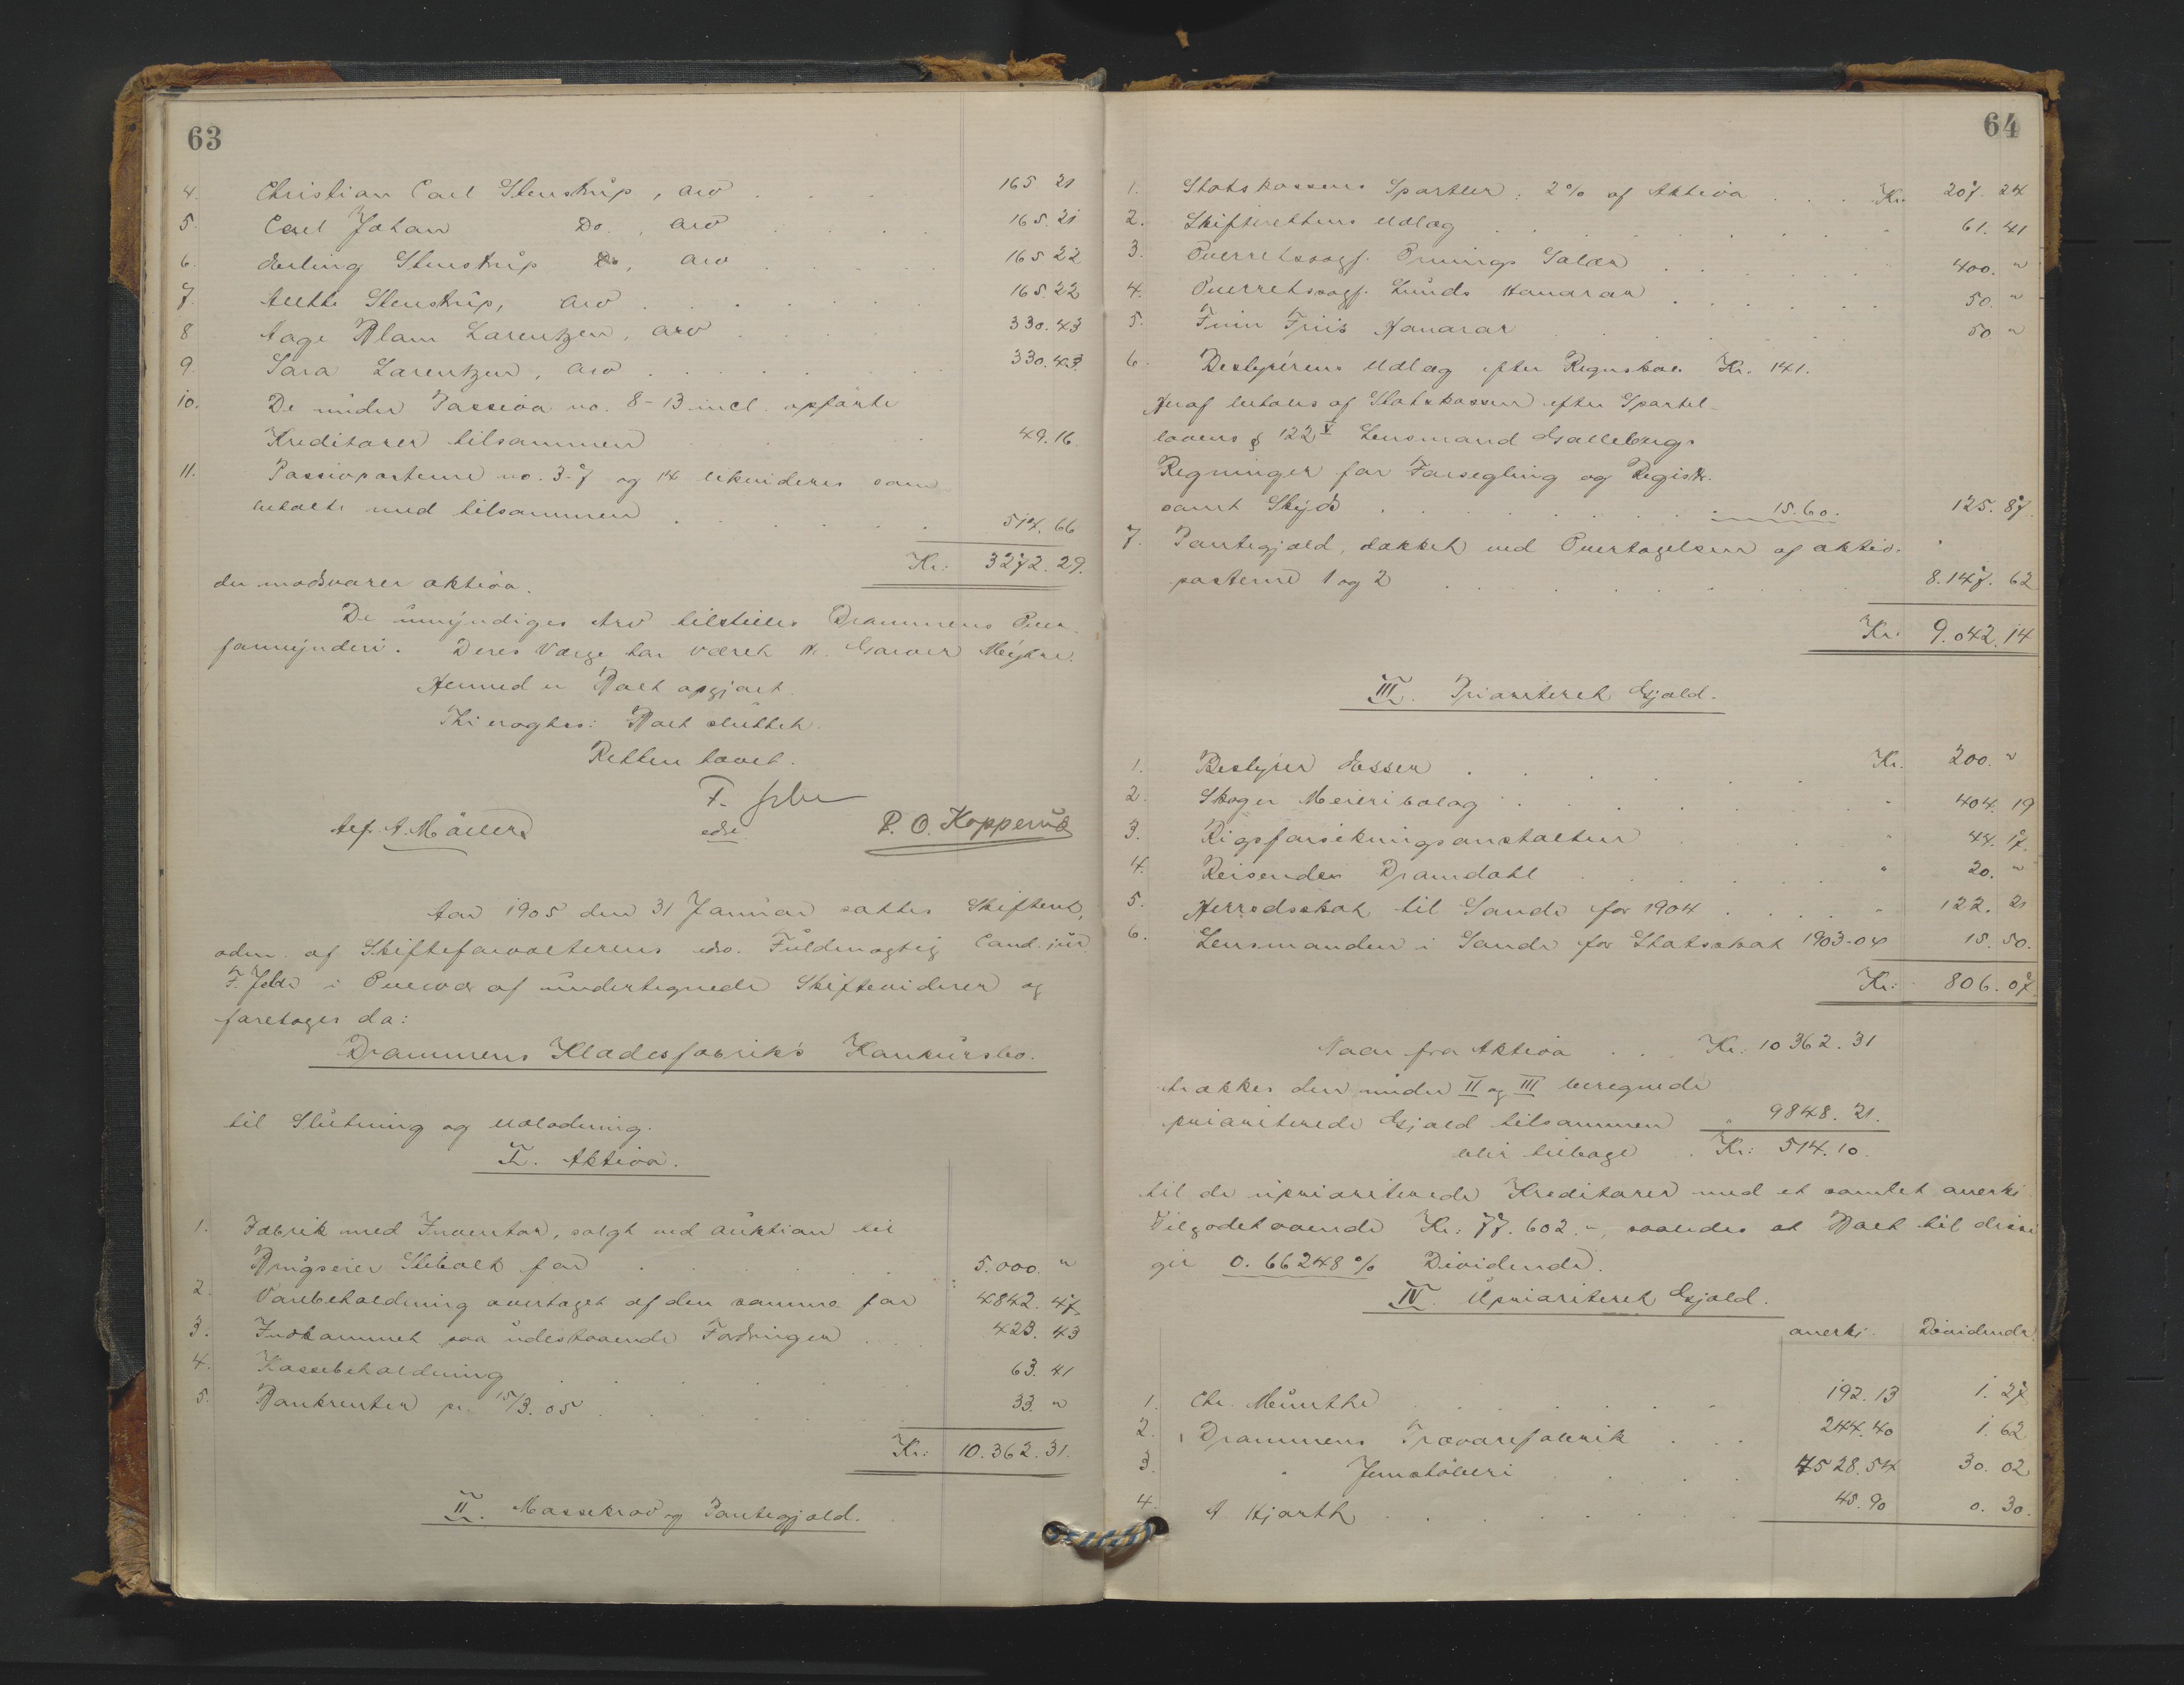 63
4. Christian Carl Stenstrup, arv . . . 165 21
5 Carl Johan Do., arv . . . . 165.21
6. Erling Stenstrup Do, arv . . . . 165 22
7. Aletta Stenstrup, arv . . . . . . 165.22
8 Aage Blom Lorentzen, arv . . . 330.43
9. Sara Lorentzen, arv . . . . . 330.43
10. De under Passiva no. 8-13 incl. opførte
Kreditorer tilsammen . . . . 49.16.
11. Passivposterne no. 3-7 og 14 likvideres som
betalte med tilsammen . . . . . . 514.66
Kr: 3272.29.
der modsvarer aktiva.
De umyndiges Arv tilstilles Drammens Over-
formynderi. Deres Værge har været Hr. Garver Meyer.
Hermed er Boet opgjort.
Thi eragtes: Boet sluttet.
Retten hævet.
F. Jelse
edsv.
Alf. A. Møller
P. O. Kopperud
Aar 1905 den 31 Januar sattes Skifteret,
adm. af Skifteforvalterens edsv. Fuldmægtig Cand. jur
F. Jelse i Overvær af undertegnede Skiftevidner og
foretoges da:
Drammens Klædesfabriks Konkursbo.
til Slutning og Udlodning.
I. Aktiva.
1. Fabrik med Inventar, solgt ved auktion til
Brugseier Stibolt for . . . . . . 5.000. "
2. Varebeholdning overtaget af den samme for 4842.47
3. Indkommet paa udestaaende Fordringer . . 423.43
4. Kassebeholdning . . . . . . 63.41
5. Bankrenter pr. 15/3.05 . . . . . 33. "
Kr: 10.362.31.
II. Massekrav og Pantegjæld.
64
1. Statskassens Sportler: 2% af Aktiva . . . Kr. 207.24
2. Skifterettens Udlæg . . . . . . . " 61.41
3. Overretssagf. Omnings Salær . . . . . 400. "
4. Overretssagf. Lunds Honorar . . . . . . 50. "
5. Fuin Friis Honorar . . . . . 50 "
6. Bestyrerens Udlæg efter Regnskab Kr. 141.
Heraf betales af Statskassen efter Sportel-
lovens § 122 V Lensmand Gallebergs
Regninger for Forsegling og Registr.
samt Skyds . . . . . . . . 15.60. 125.87.
7. Pantegjæld, dækket ved Overtagelsen af aktiv-
posterne 1 og 2 . . . . . . . . 8.147.62
Kr: 9.042.14
III. Prioriteret Gjæld.
1. Bestyrer Esser . . . . . Kr. 200. "
2. Skoger Meieribolag . . . . . . " 404.19
3. Rigsforsikringsanstalten . . . . " 44.17.
4. Reisender Bramdahl . . . . . " 20. "
5. Herredsskat til Sande for 1904 . . . . " 122.21
6. Lensmanden i Sande for Statsskat 1903-04 15.50.
Kr: 806.07.
Naar fra Aktiva . . . Kr: 10362.31
trækkes den under II og III beregnede
prioriterede Gjæld tilsammen " 9848.21.
blir tilbage . Kr: 514.10.
til de uprioriterede Kreditorer med et samlet anerkj.
Tilgodehavende Kr: 77.602.-, saaledes at Boet til disse
gir 0.66248% Dividende.
IV. Uprioriteret Gjæld.
anerkj. Dividende.
1. Chr. Munthe . . . . . . . 192.13 1.27
2. Drammens Trævarefabrik . . . 244.40 1.62
3. " Jernstøberi . . . . 4528.54 30.02
4. A Hjorth . . . . . . . . 45.90 0.30.